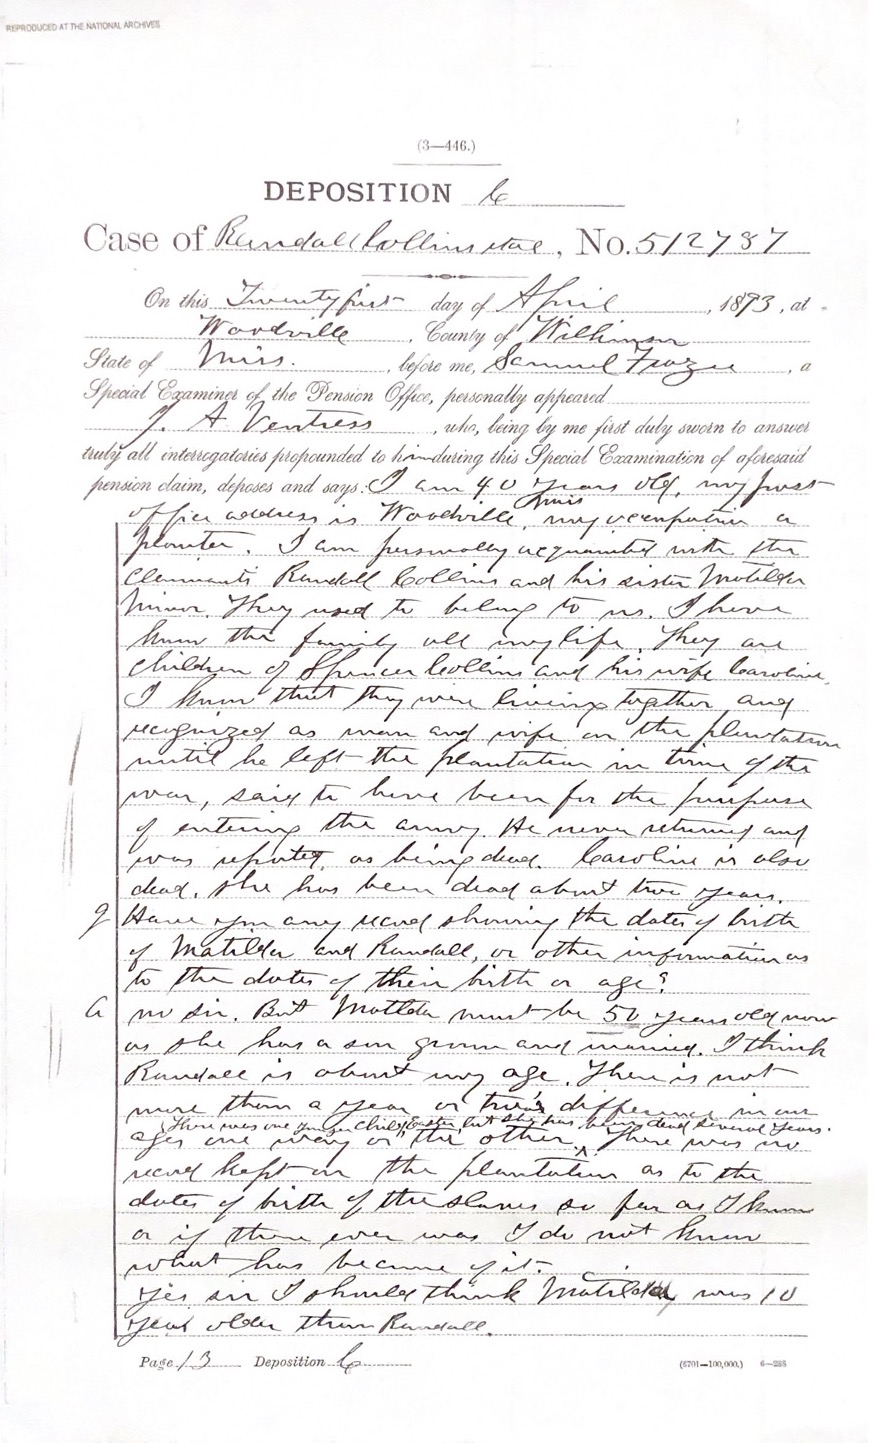 REPRODUCED AT THE NATIONAL ARCHIVES
(3—446.)
DEPOSITION C
Case of Randall Collins et al, No. 512787
On this Twenty first day of April, 1893, at
Woodville, County of Wilkinson
State of Miss., before me, Samuel Frazee, a
Special Examiner of the Pension Office, personally appeared
J. A Ventress, who, being by me first duly sworn to answer
truly all interrogatories propounded to him during this Special Examination of aforesaid
pension claim, deposes and says: I am 40 years old, my post
office address is Woodville, Miss my occupation a
planter. I am personally acquainted with the
claimants Randall Collins and his sister Matilda
Minor. They used to belong to us. I have
known the family all my life. They are
children of Spencer Collins and his wife Caroline.
I know that they were living together and
recognized as man and wife on the plantation
until he left the plantation in time of the
war, said to have been for the purpose
of entering the army. He never returned and
was reported as being dead. Caroline is also
dead. She has been dead about two years.
Q Have you any record showing the dates of birth
of Matilda and Randall, or other information as
to the dates of their birth or age?
A no sir. But Matilda must be 50 years old now
as she has a son grown and married. I think
Randall is about my age. There is not
more than a year or two's difference in our
There was one younger child, Easter, but she has been dead several years.
ages one way or the other. ^ There was no
record kept on the plantation as to the
dates of birth of the slaves so far as I know
or if there ever was I do not know
what has become of it.
Yes sir I should think Matilda was 10
years older than Randall.
Page 13 Deposition C
(6701—100,000.) 6—288